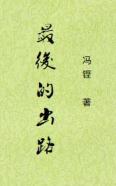 最後的出路
冯铿 著